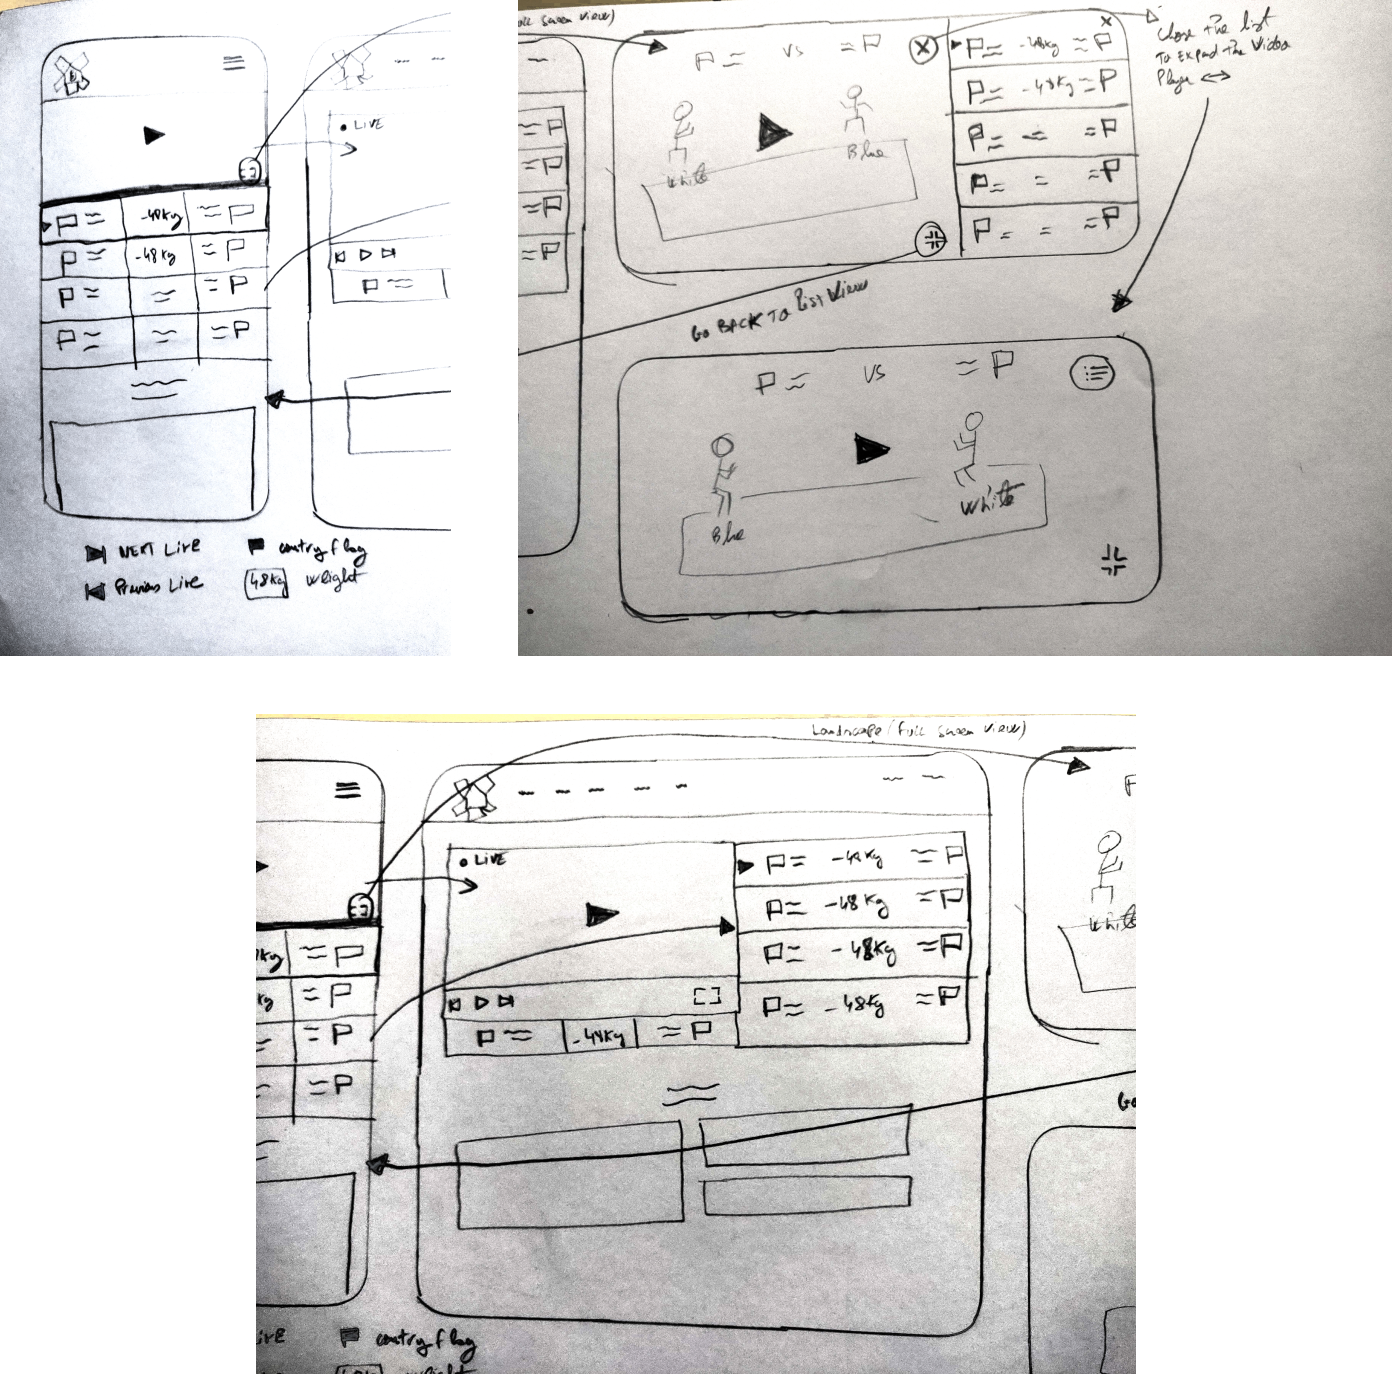 -48kg
-48kg
• LIVE
NEXT Live
Previous Live
country flag
48kg weight
Screen View)
VS
White
Blue
-48kg
-48kg
Close the list
To Expand the Video
Player ↔
Go BACK TO List View
VS
Blue
White
Landscape (Full Screen View)
• LIVE
-48kg
-48kg
-48kg
-48kg
-44kg
White
Go
country flag